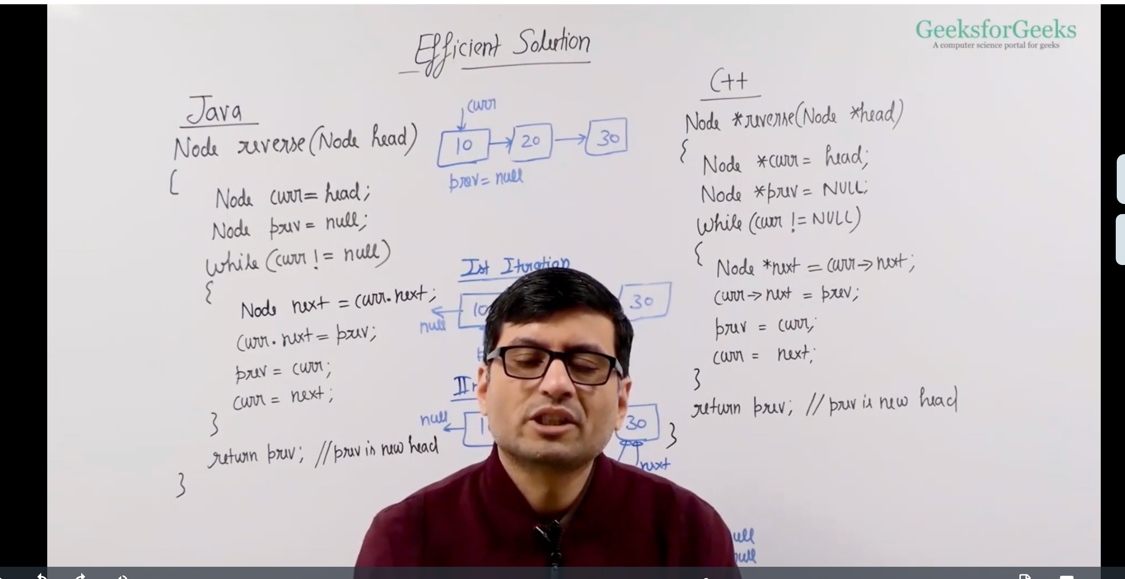 GeeksforGeeks
A computer science portal for geeks
Efficient Solution
Java
Node reverse(Node head)
{
Node curr= head;
Node prev= null;
while (curr != null)
{
Node next = curr.next;
curr.next = prev;
prev = curr;
curr = next;
}
return prev; //prev is new head
}
curr
10
20
30
prev= null
Ist Iteration
10
30
null
null
30
next
ull
ull
C++
Node *reverse(Node *head)
{
Node *curr= head;
Node *prev= NULL;
while (curr != NULL)
{
Node *next = curr→next;
curr→next = prev;
prev = curr;
curr = next;
}
return prev; //prev is new head
}